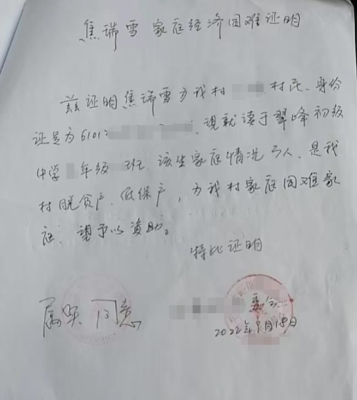 焦瑞雪家庭经济困难证明
兹证明焦瑞雪为我村 村民，身份
证号为6101 ，现就读于翠峰初级
中学 年级 班。该生家庭情况 人，是我
村脱贫户、低保户，为我村家庭困难家
庭，望予以资助。
特比证明
属实 同意
2022年9月18日